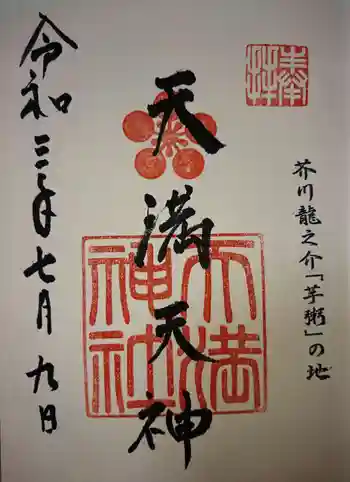 奉拝
芥川龍之介「芋粥」の地
天満天神
天満
神社
令和三年七月九日